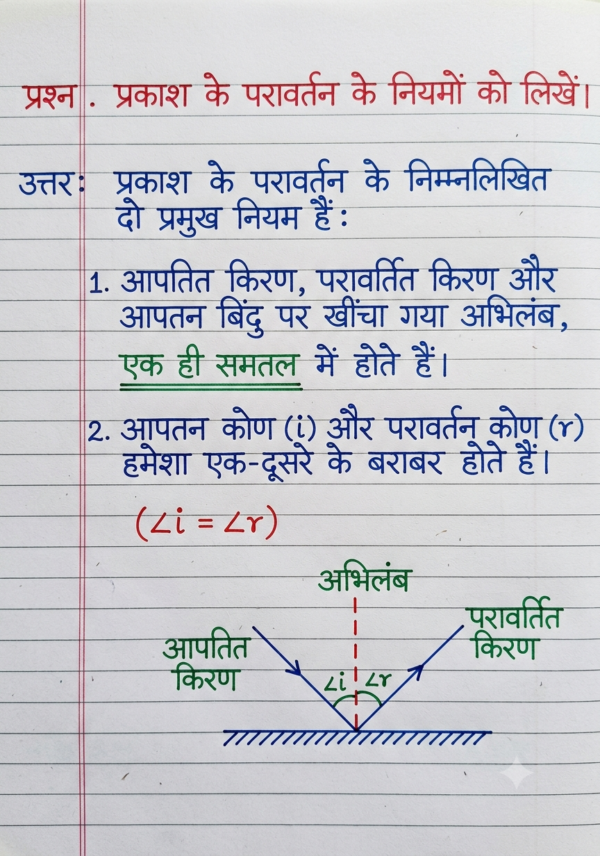 प्रश्न . प्रकाश के परावर्तन के नियमों को लिखें।
उत्तर: प्रकाश के परावर्तन के निम्नलिखित
दो प्रमुख नियम हैं:
1. आपतित किरण, परावर्तित किरण और
आपतन बिंदु पर खींचा गया अभिलंब,
एक ही समतल में होते हैं।
2. आपतन कोण (i) और परावर्तन कोण (r)
हमेशा एक-दूसरे के बराबर होते हैं।
(∠i = ∠r)
अभिलंब
आपतित
किरण
परावर्तित
किरण
∠i ∠r